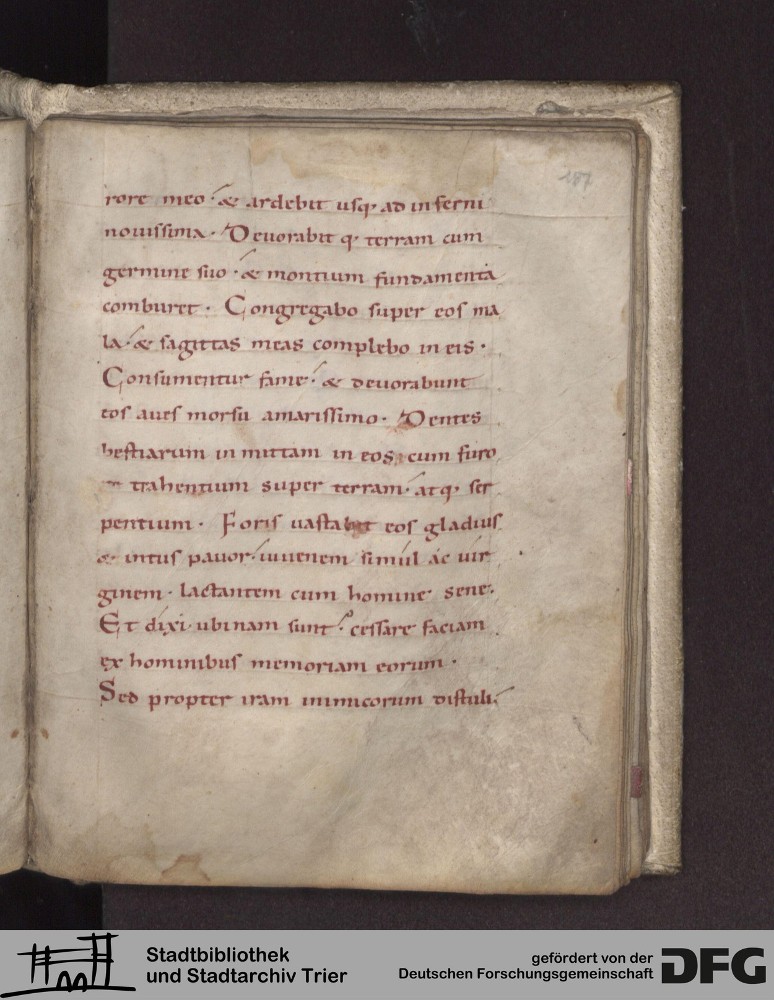 187
rore meo · & ardebit usq· ad inferni
novissima · Devorabit q· terram cum
germine suo · & montium fundamenta
comburet · Congregabo super eos ma
la · & sagittas meas complebo in eis ·
Consumentur fame · & devorabunt
eos aves morsu amarissimo · Dentes
bestiarum inmittam in eos, cum furo
re trahentium super terram · atq· ser
pentium · Foris vastabit eos gladius
& intus pavor · iuvenem simul ac vir
ginem · lactantem cum homine sene ·
Et dixi · ubinam sunt · cessare faciam
ex hominibus memoriam eorum ·
Sed propter iram inimicorum distuli ·
Stadtbibliothek
und Stadtarchiv Trier
gefördert von der
Deutschen Forschungsgemeinschaft
DFG